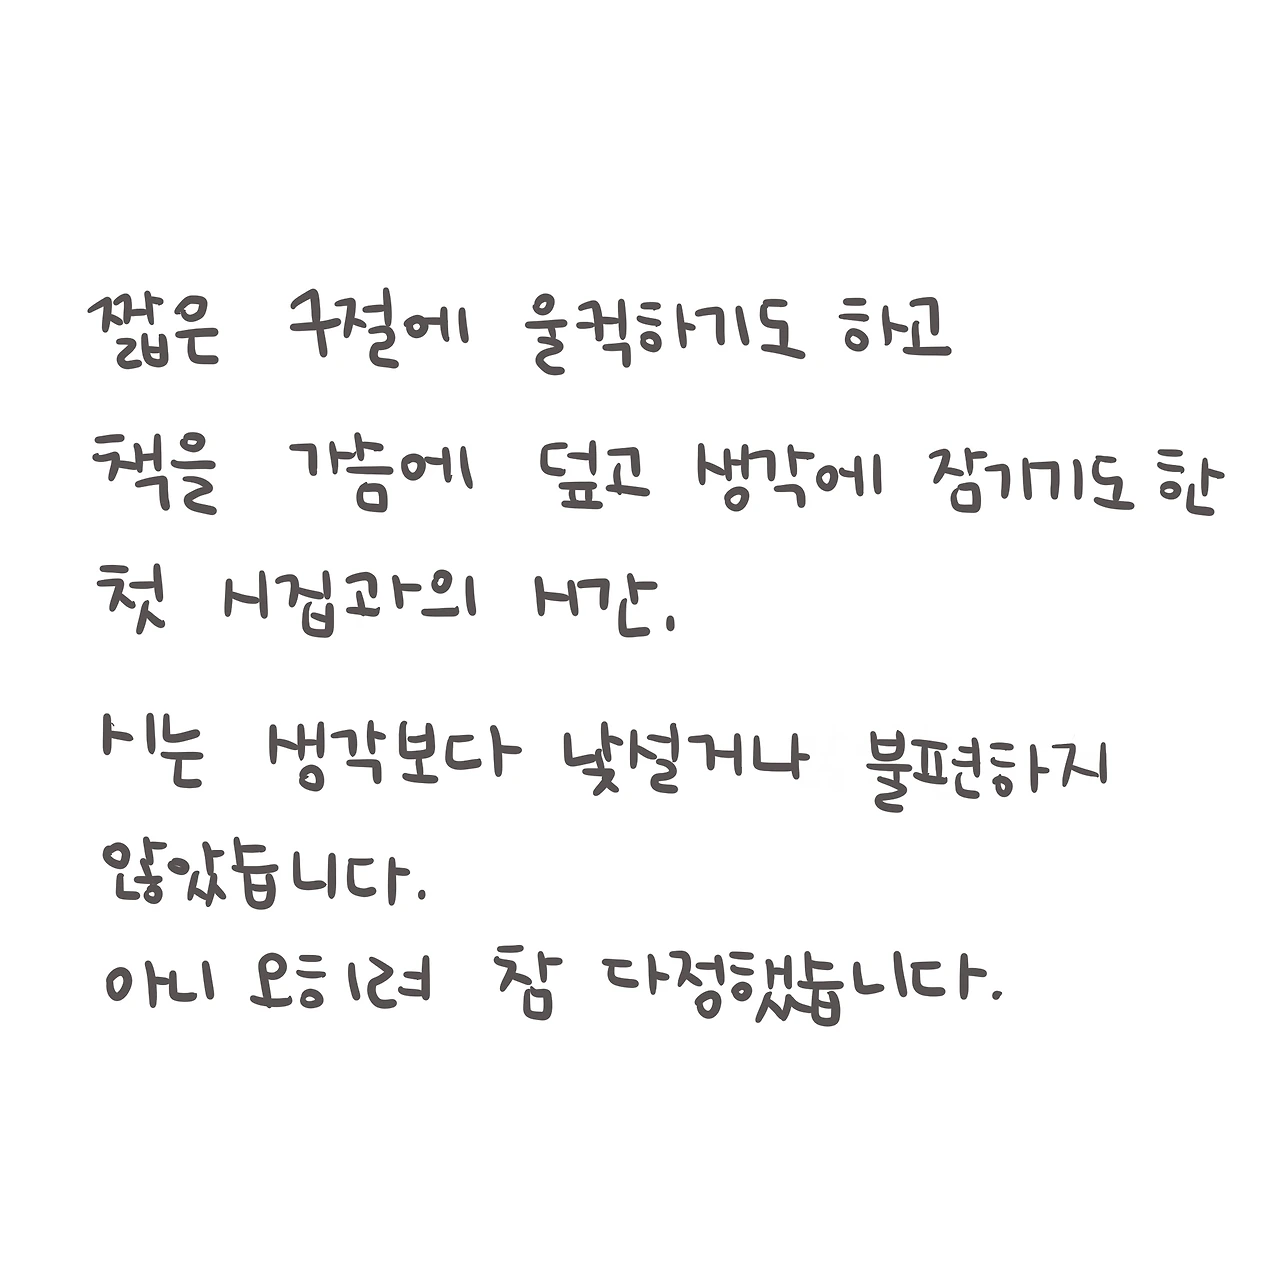 짧은 구절에 울컥하기도 하고
책을 가슴에 덮고 생각에 잠기기도 한
첫 시집과의 시간.
시는 생각보다 낯설거나 불편하지
않았습니다.
아니 오히려 참 다정했습니다.